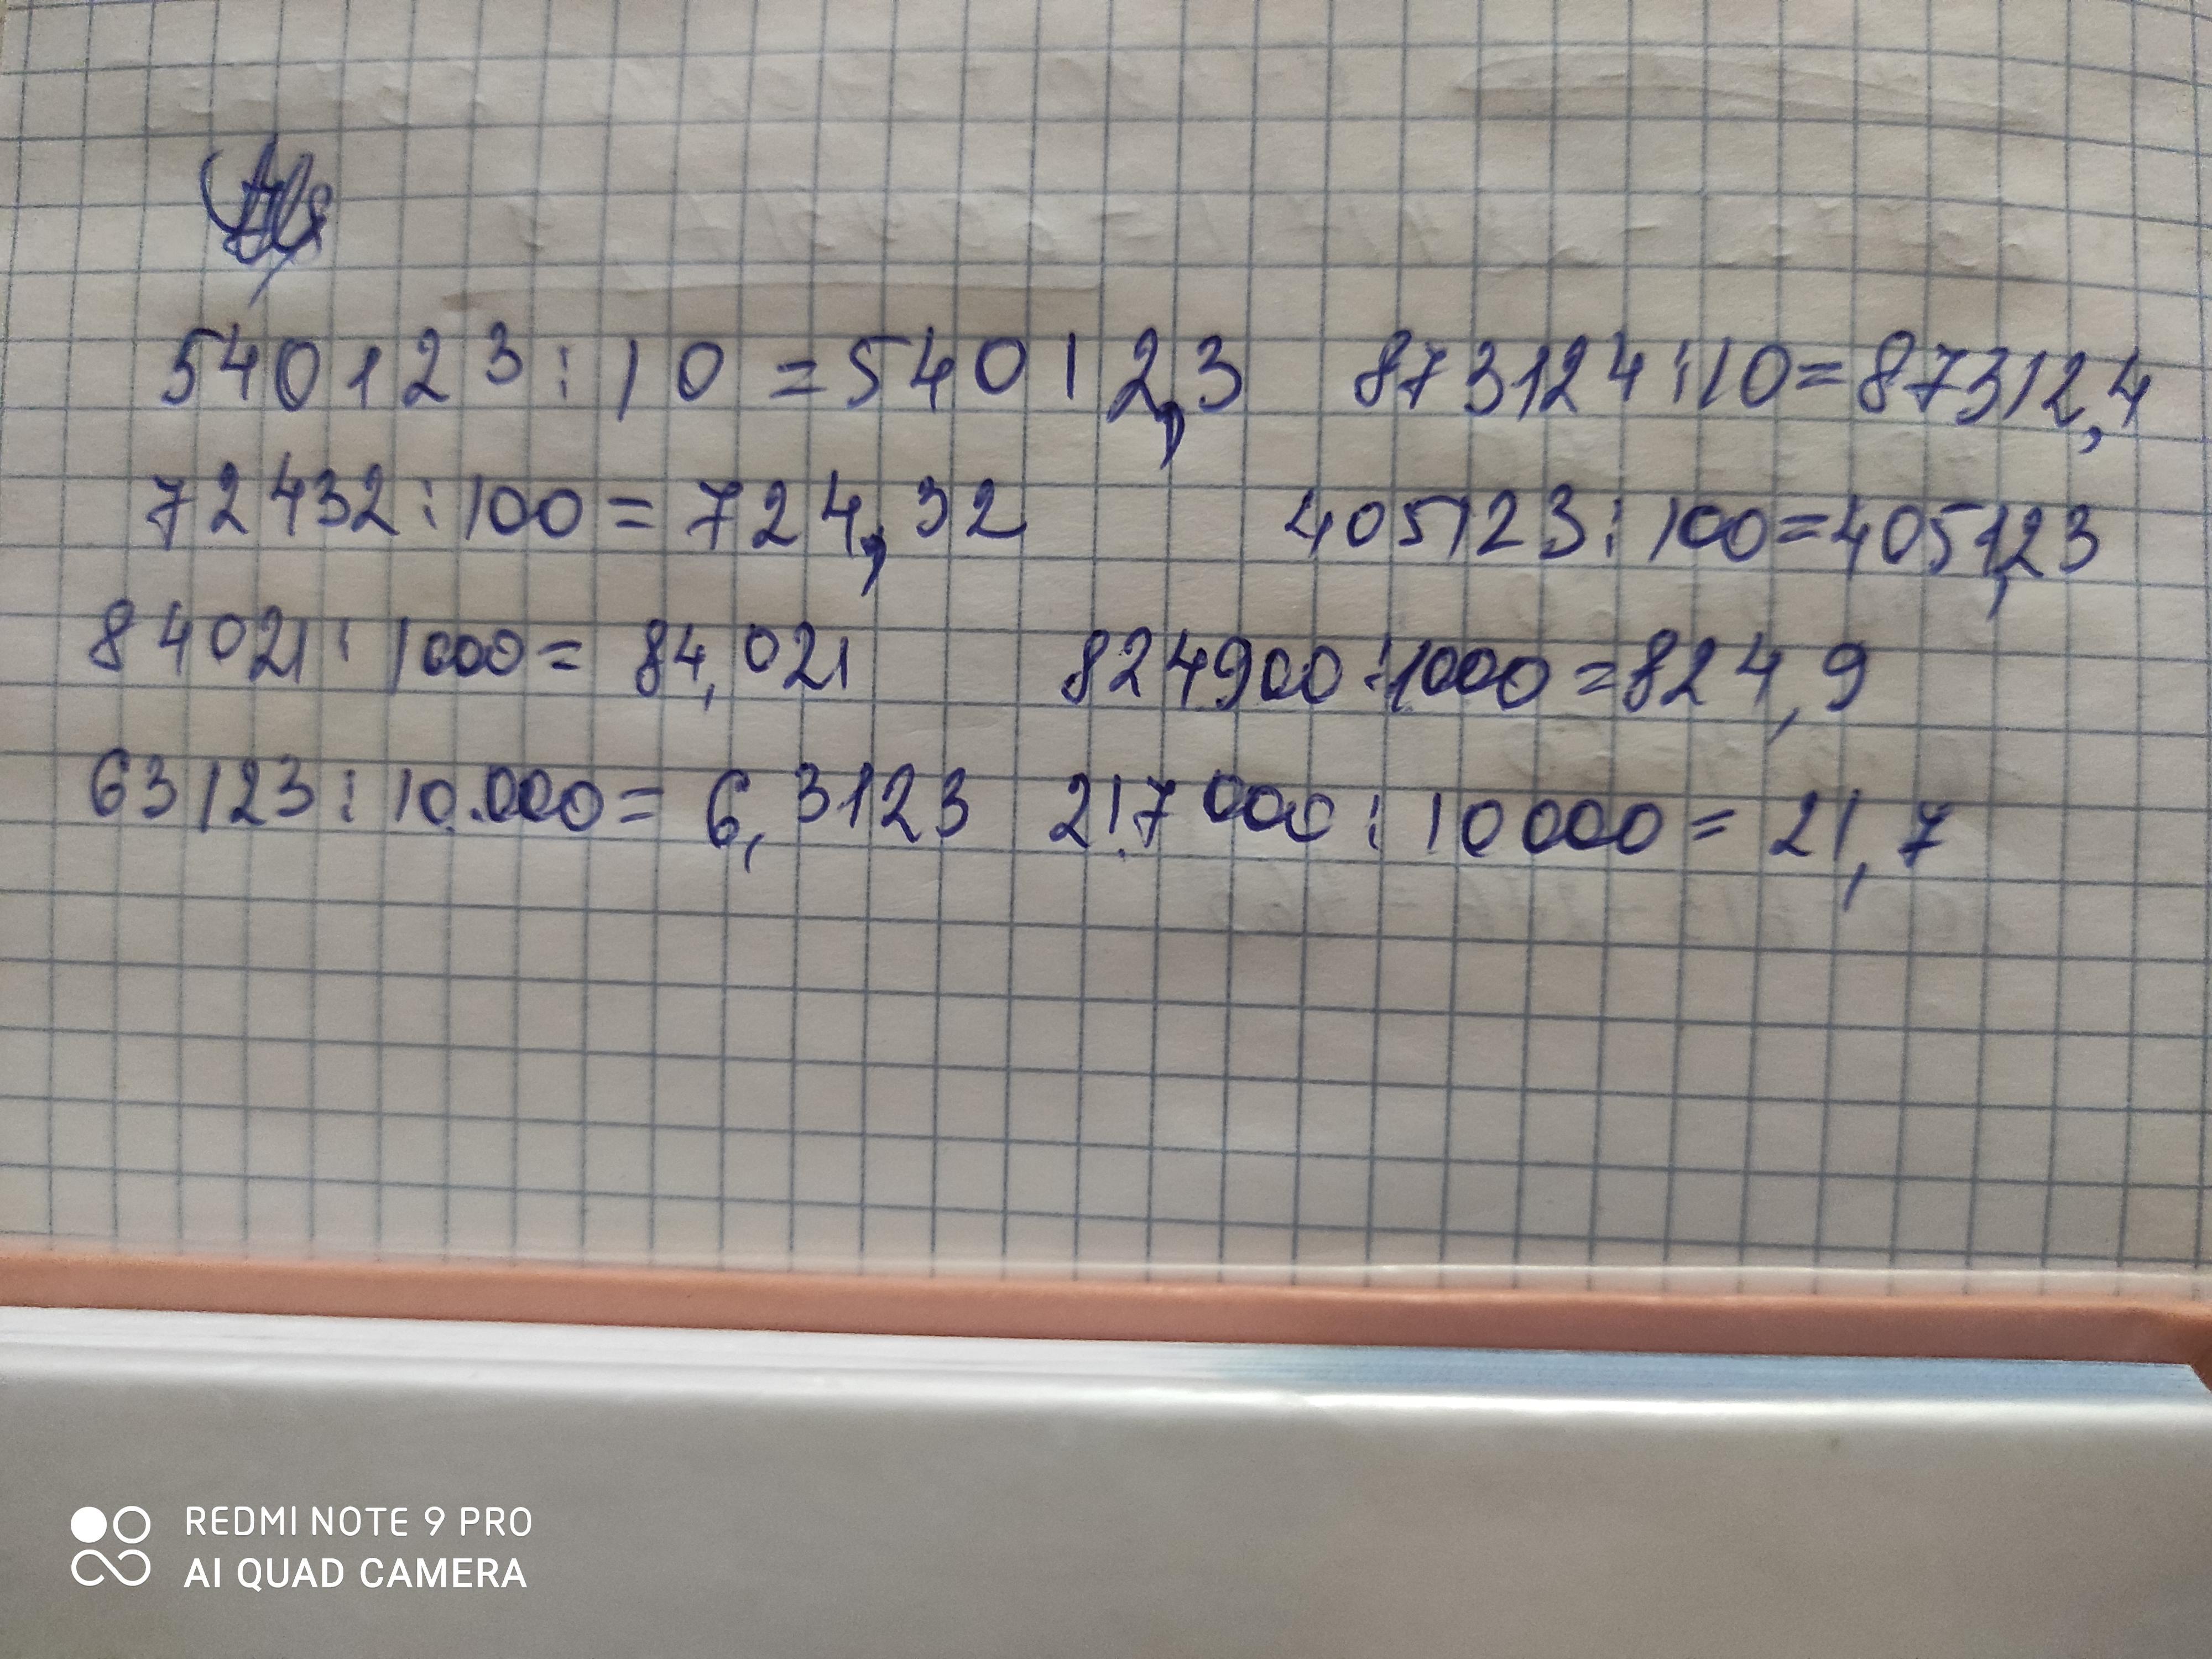 540123:10=54012,3 873124:10=87312,4
72432:100=724,32 405123:100=4051,23
84021:1000=84,021 824900:1000=824,9
63123:10.000=6,3123 217000:10000=21,7
REDMI NOTE 9 PRO
AI QUAD CAMERA